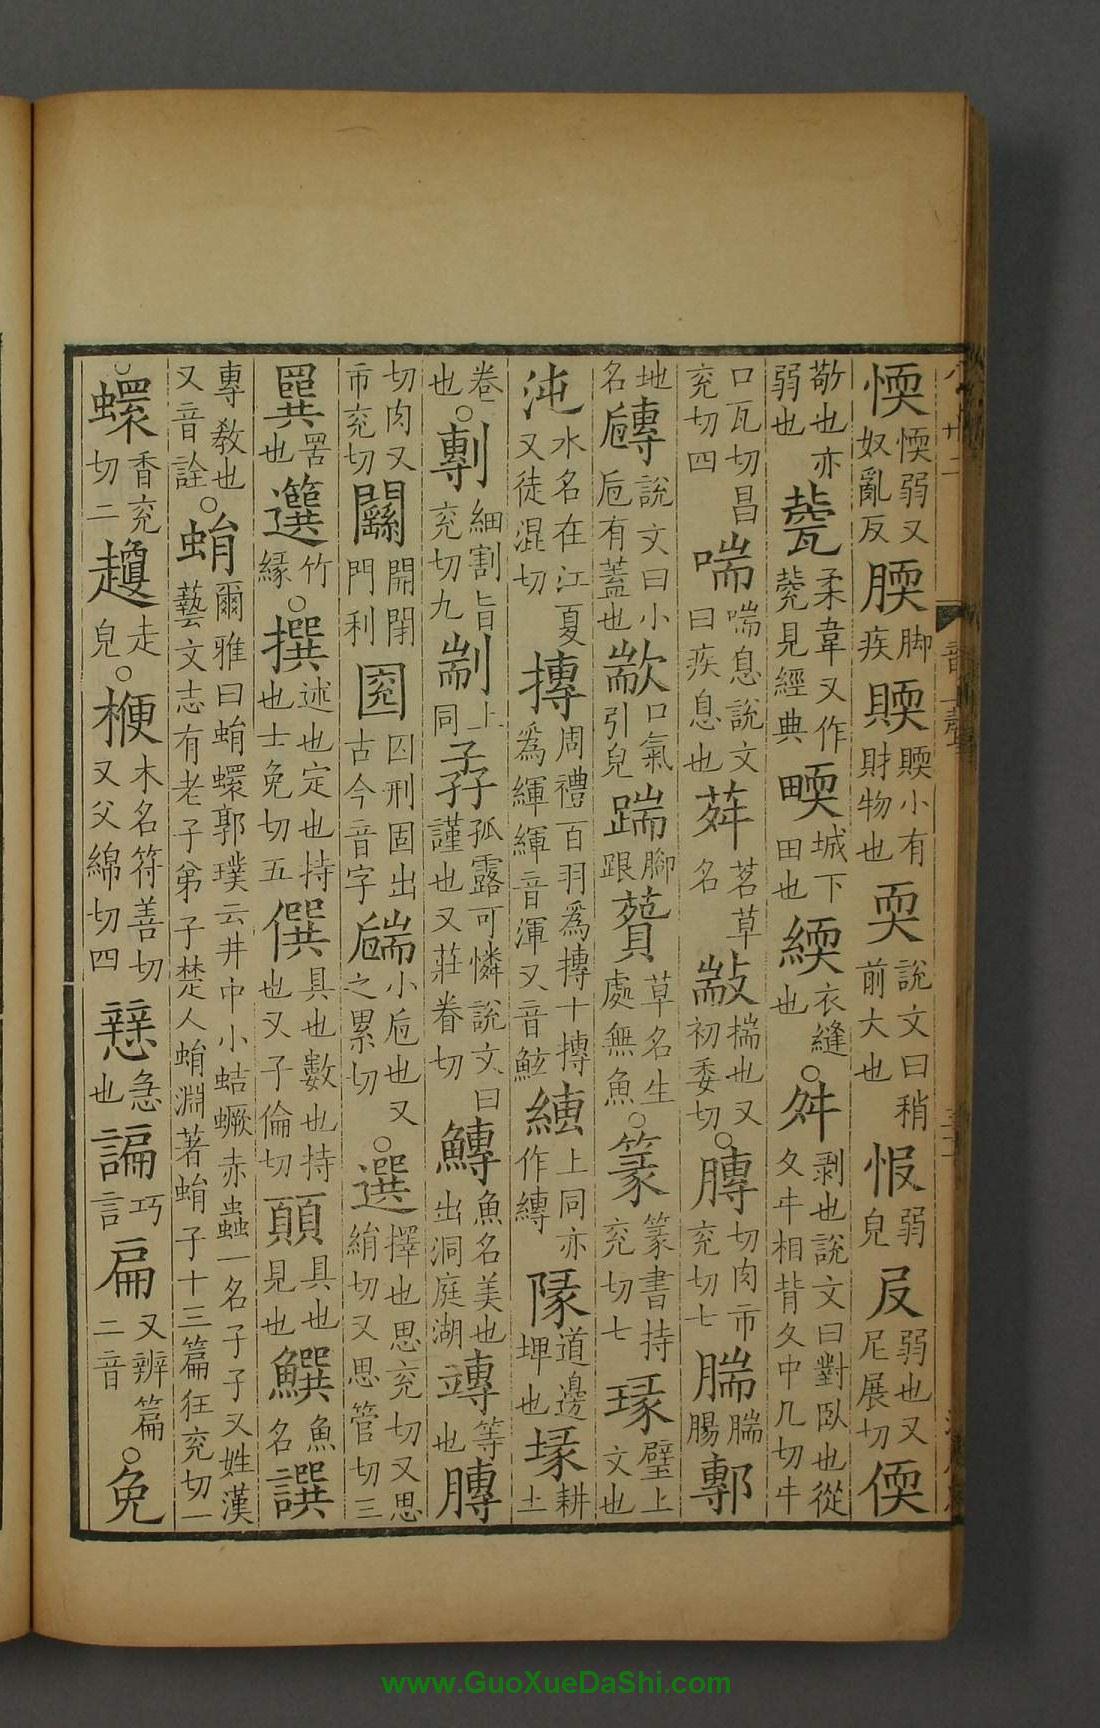 愞愞弱又奴亂反腝脚疾䞂䞂小有財物也耎說文曰稍前大也㤆弱皃㞋弱也又尼展切偄
敬也亦弱也㼱柔韋又作㼱見經典㽭城下田也緛衣縫也○舛剥也說文曰對臥也從夂㐄相背夂中几切㐄
口瓦切昌兖切四喘喘息說文曰疾息也荈茗草名㪜揣也又初委切○膞切肉市兖切七腨腨腸鄟
地名𠷎說文曰小巵有蓋也歂口氣引皃踹腳跟䕎草名生處無魚○篆篆書持兖切七瑑璧上文也
沌水名在江夏又徒混切摶周禮百羽爲摶十摶爲緷緷音渾又音䰸縳上同亦作縳隊道邊埤也堟耕土
卷也○剸細割旨兖切九剬上同孨孤露可憐說文曰謹也又莊眷切鱄魚名美也出洞庭湖竱等也膞
切肉又市兖切𨷲開閉門利圌囚刑固出古今音字㼷小巵也又之累切○選擇也思兖切又思絹切又思管切三
㔵罟也簨竹緣○撰述也定也持也士免切五僎具也數也持也又子倫切顨具也見也鱒魚名譔
專教也又音詮○蜎爾雅曰蜎蠉郭璞云井中小蛣蟩赤蟲一名孑孓又姓漢藝文志有老子弟子楚人蜎淵著蜎子十三篇狂兖切一
○蠉香兖切二䞛走皃○楩木名符善切又父綿切四㦚急也諞巧言扁又辨篇二音○免
www.GuoXueDaShi.com